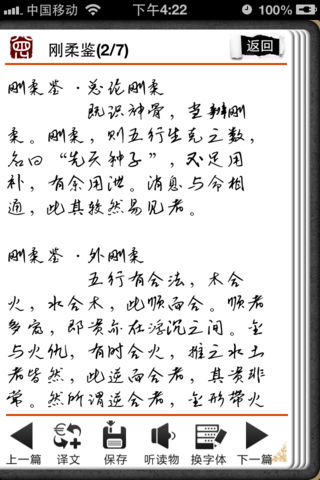 中国移动 下午4:22
刚柔鉴(2/7) 返回
刚柔鉴·总论刚柔
既识神骨，当辨刚
柔。刚柔，则五行生克之数，
名曰“先天种子”，不足用
补，有余用泄。消息与命相
通，此其较然易见者。
刚柔鉴·外刚柔
五行有合法，木合
火，水合木，此顺而合。顺者
多富，即贵亦在浮沉之间。金
与火仇，有时合火，推之水土
者皆然，此逆而合者，其贵非
常。然所谓逆合者，金形带火
上一篇 译文 保存 听读物 换字体 下一篇